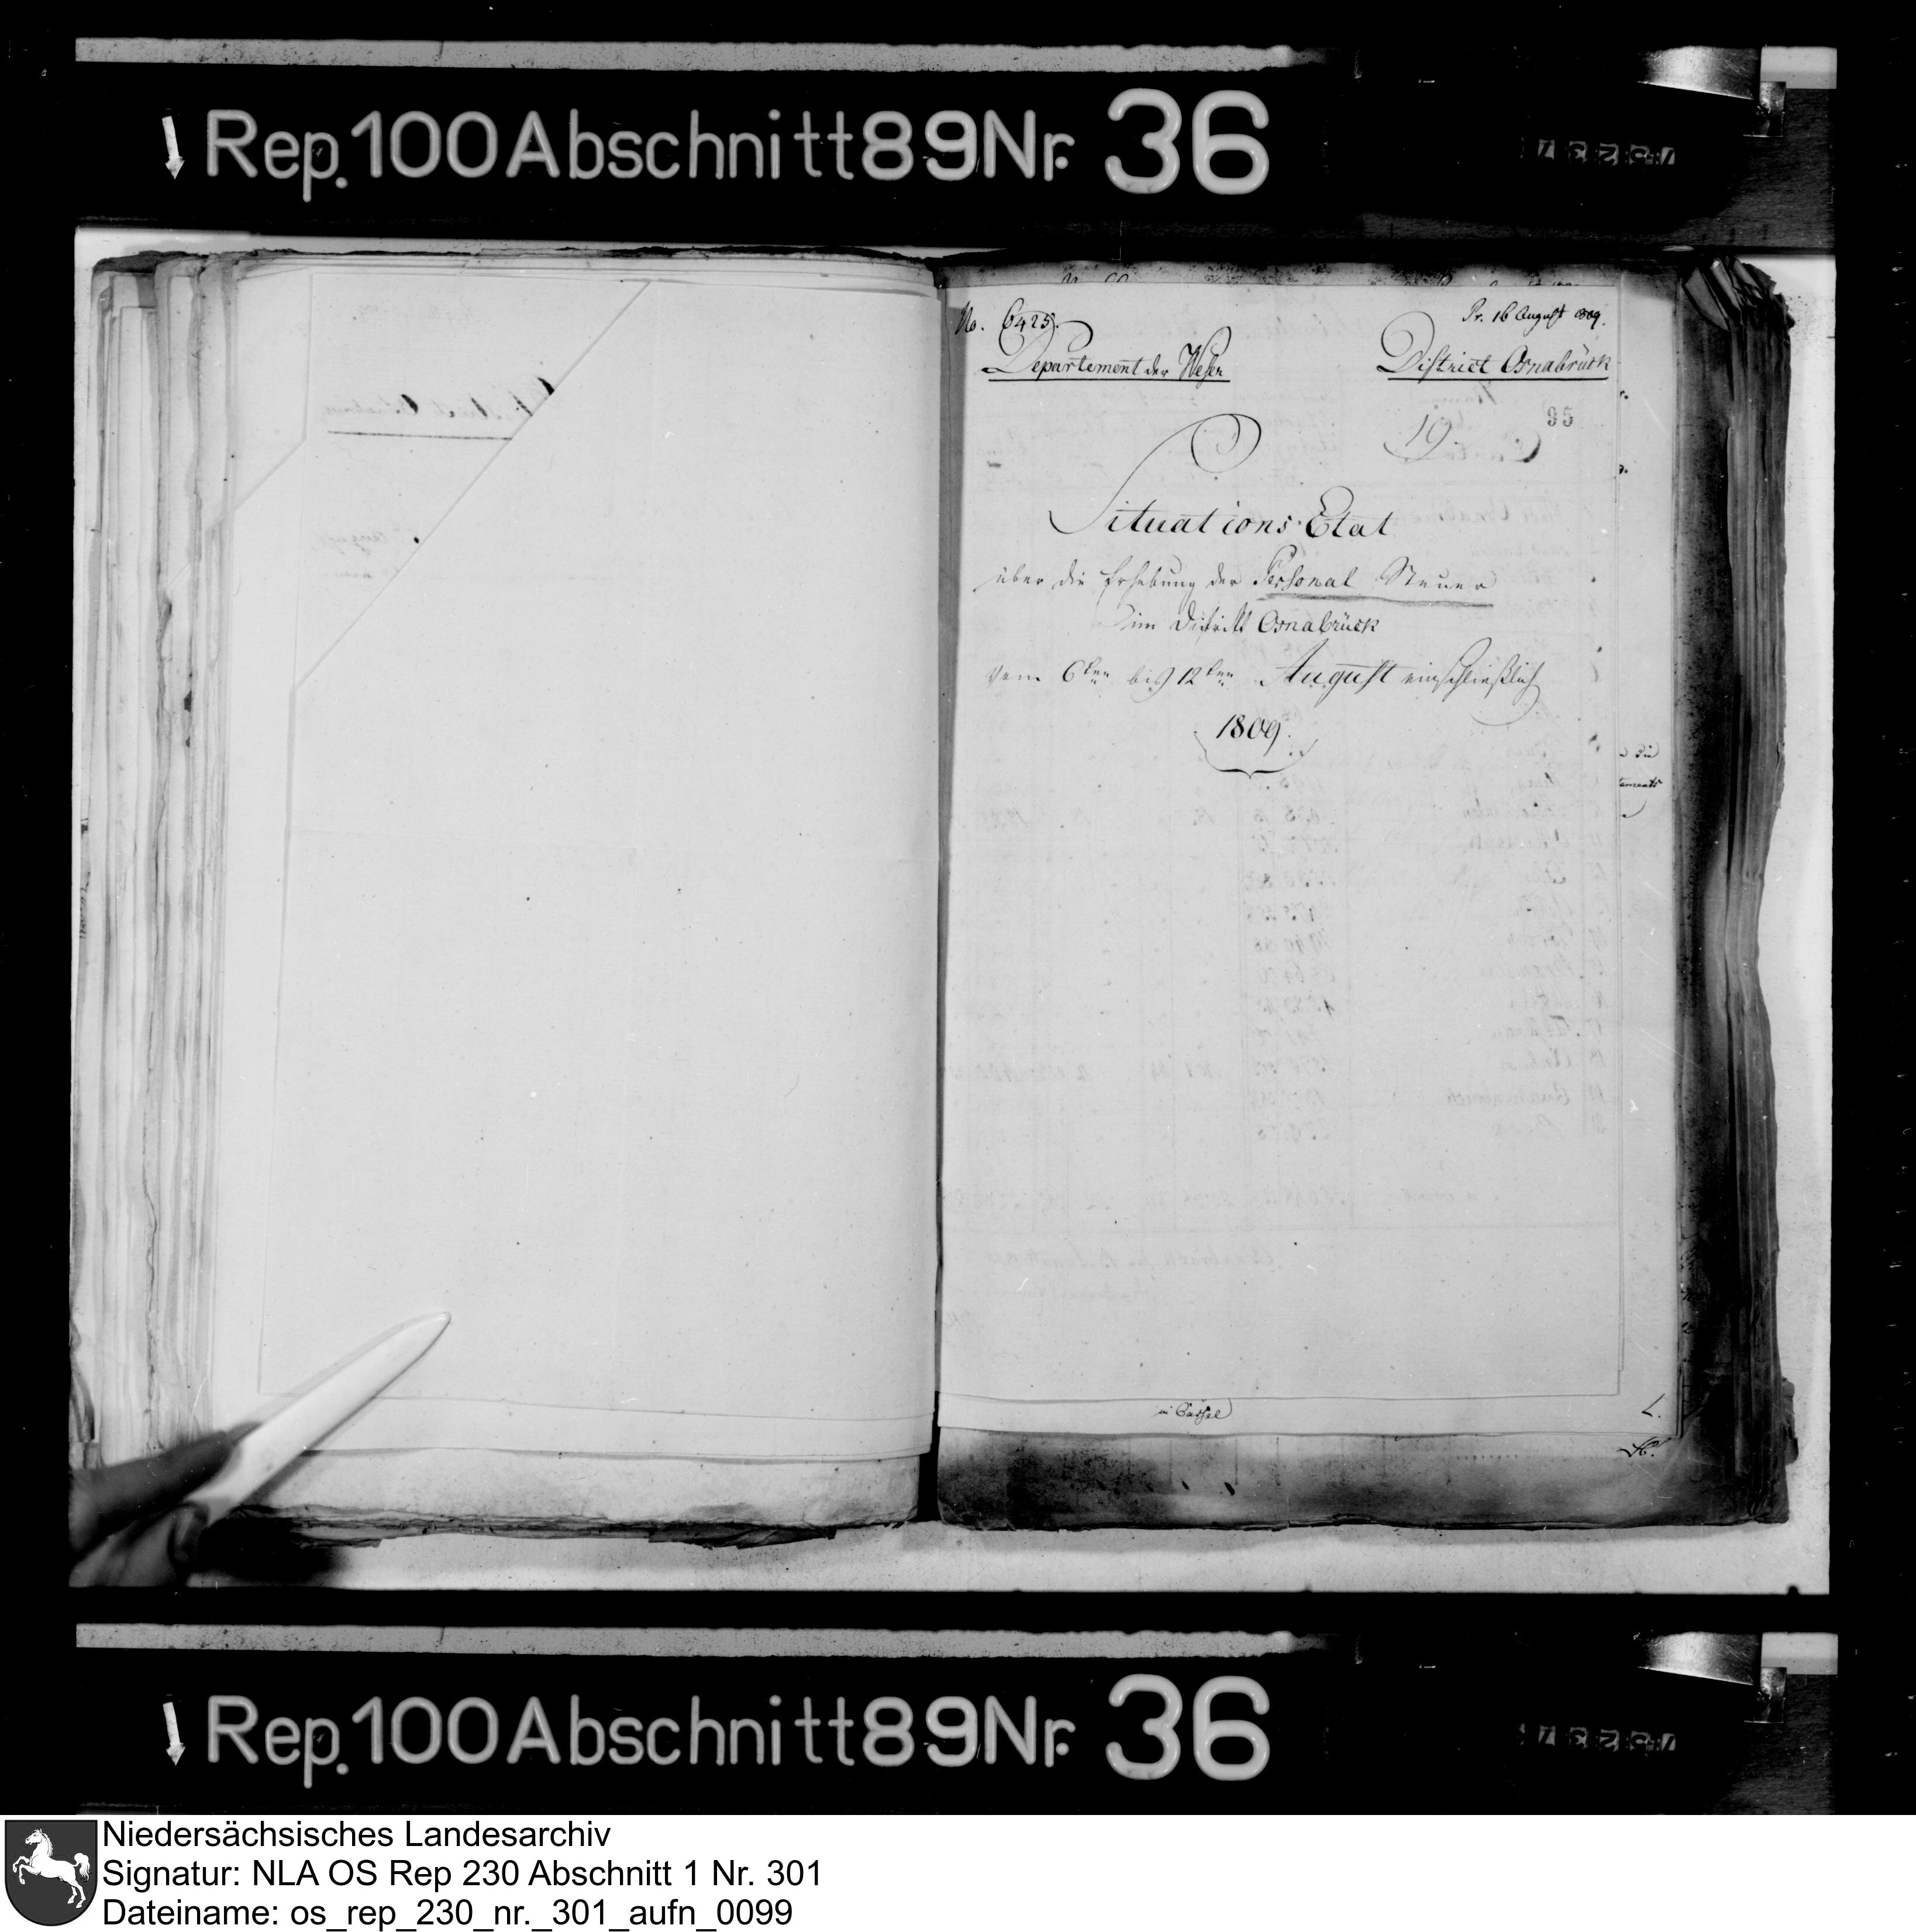 Rep. 100 Abschnitt 89 Nr. 36
No. 6425.
Pr. 16 August 1809.
Departement der Weser
District Osnabrück
95
19.
Situations-Etat
über die Erhebung der Personal Steuer
im District Osnabrück
vom 6ten bis 12ten August einschließlich
1809.
in Cassel
Rep. 100 Abschnitt 89 Nr. 36
Niedersächsisches Landesarchiv
Signatur: NLA OS Rep 230 Abschnitt 1 Nr. 301
Dateiname: os_rep_230_nr._301_aufn_0099